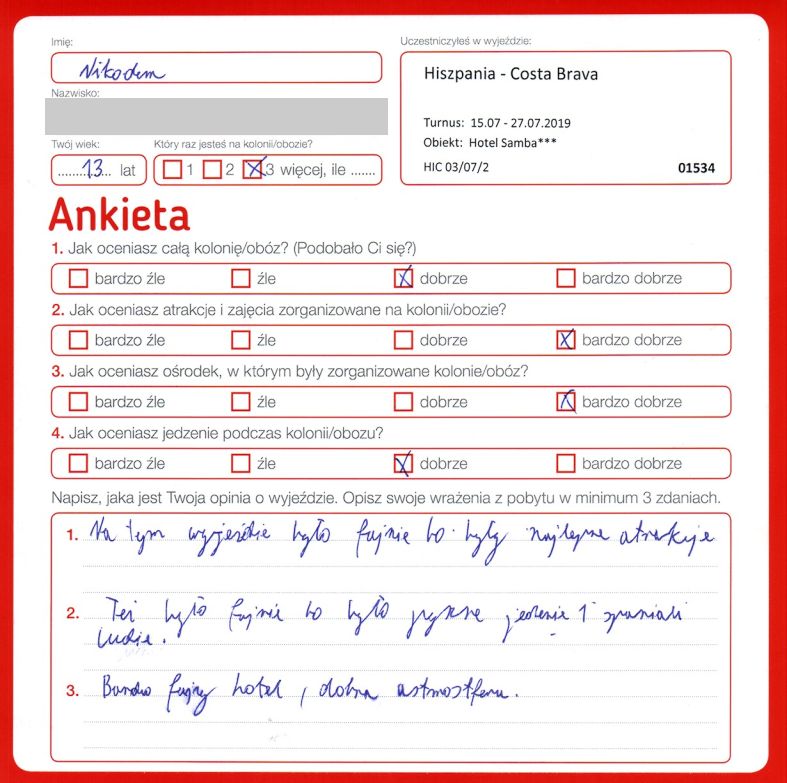 Imię:
Nikodem
Nazwisko:
Twój wiek:
13 lat
Który raz jesteś na kolonii/obozie?
1 2 3 więcej, ile .......
Uczestniczyłeś w wyjeździe:
Hiszpania - Costa Brava
Turnus: 15.07 - 27.07.2019
Obiekt: Hotel Samba***
HIC 03/07/2 01534
Ankieta
1. Jak oceniasz całą kolonię/obóz? (Podobało Ci się?)
bardzo źle źle dobrze bardzo dobrze
2. Jak oceniasz atrakcje i zajęcia zorganizowane na kolonii/obozie?
bardzo źle źle dobrze bardzo dobrze
3. Jak oceniasz ośrodek, w którym były zorganizowane kolonie/obóz?
bardzo źle źle dobrze bardzo dobrze
4. Jak oceniasz jedzenie podczas kolonii/obozu?
bardzo źle źle dobrze bardzo dobrze
Napisz, jaka jest Twoja opinia o wyjeździe. Opisz swoje wrażenia z pobytu w minimum 3 zdaniach.
1. Na tym wyjeździe było fajnie bo były najlepsze atrakcje
2. Też było fajnie bo było pyszne jedzenie i spaniali
ludzie.
3. Bardzo fajny hotel, dobra astmosfera.